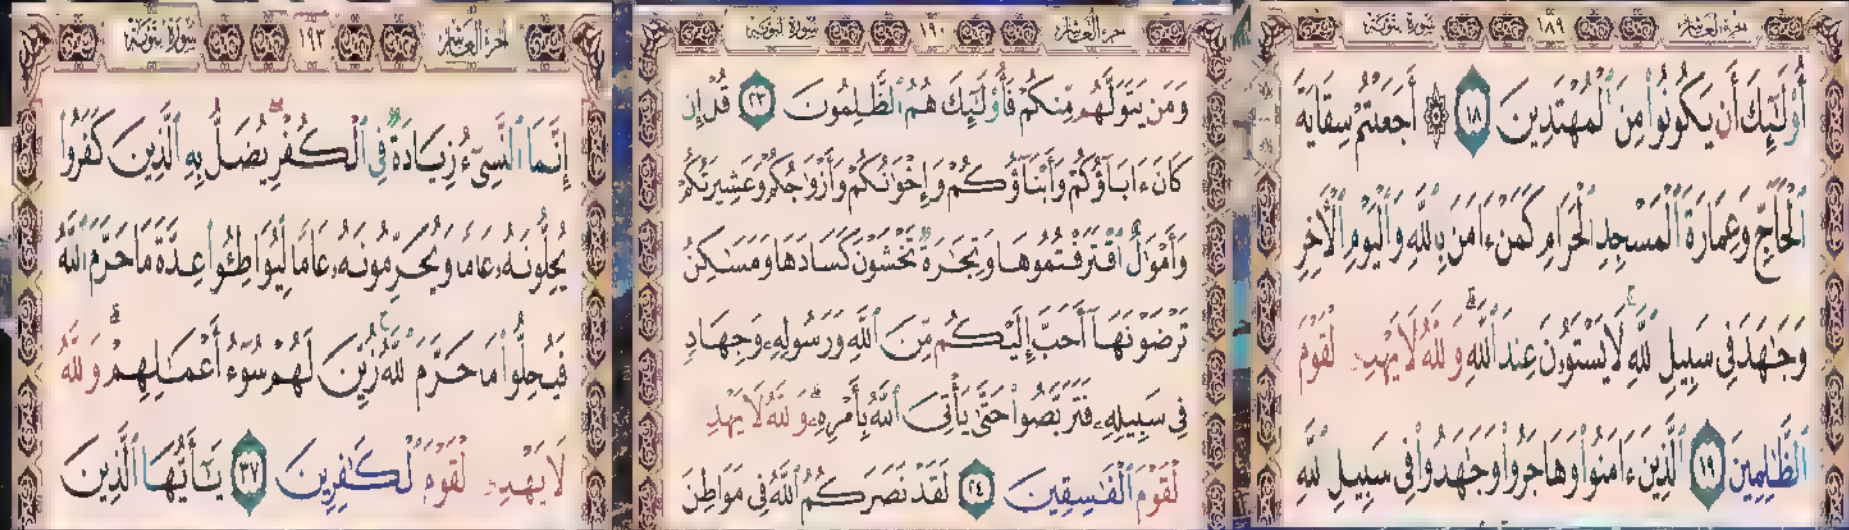 سورة التوبة ١٨٩ الجزء العاشر
أُوْلَٰٓئِكَ أَن يَكُونُوا۟ مِنَ ٱلْمُهْتَدِينَ ١٨ ۞ أَجَعَلْتُمْ سِقَايَةَ
ٱلْحَآجِّ وَعِمَارَةَ ٱلْمَسْجِدِ ٱلْحَرَامِ كَمَنْ ءَامَنَ بِٱللَّهِ وَٱلْيَوْمِ ٱلْءَاخِرِ
وَجَٰهَدَ فِى سَبِيلِ ٱللَّهِ لَا يَسْتَوُۥنَ عِندَ ٱللَّهِ وَٱللَّهُ لَا يَهْدِى ٱلْقَوْمَ
ٱلظَّٰلِمِينَ ١٩ ٱلَّذِينَ ءَامَنُوا۟ وَهَاجَرُوا۟ وَجَٰهَدُوا۟ فِى سَبِيلِ ٱللَّهِ
سورة التوبة ١٩٠ الجزء العاشر
وَمَن يَتَوَلَّهُم مِّنكُمْ فَأُو۟لَٰٓئِكَ هُمُ ٱلظَّٰلِمُونَ ٢٣ قُلْ إِن
كَانَ ءَابَآؤُكُمْ وَأَبْنَآؤُكُمْ وَإِخْوَٰنُكُمْ وَأَزْوَٰجُكُمْ وَعَشِيرَتُكُمْ
وَأَمْوَٰلٌ ٱقْتَرَفْتُمُوهَا وَتِجَٰرَةٌ تَخْشَوْنَ كَسَادَهَا وَمَسَٰكِنُ
تَرْضَوْنَهَآ أَحَبَّ إِلَيْكُم مِّنَ ٱللَّهِ وَرَسُولِهِۦ وَجِهَادٍ
فِى سَبِيلِهِۦ فَتَرَبَّصُوا۟ حَتَّىٰ يَأْتِىَ ٱللَّهُ بِأَمْرِهِۦ وَٱللَّهُ لَا يَهْدِى
ٱلْقَوْمَ ٱلْفَٰسِقِينَ ٢٤ لَقَدْ نَصَرَكُمُ ٱللَّهُ فِى مَوَاطِنَ
سورة التوبة ١٩٣ الجزء العاشر
إِنَّمَا ٱلنَّسِىٓءُ زِيَادَةٌ فِى ٱلْكُفْرِ يُضَلُّ بِهِ ٱلَّذِينَ كَفَرُوا۟
يُحِلُّونَهُۥ عَامًا وَيُحَرِّمُونَهُۥ عَامًا لِّيُوَاطِـُٔوا۟ عِدَّةَ مَا حَرَّمَ ٱللَّهُ
فَيُحِلُّوا۟ مَا حَرَّمَ ٱللَّهُ زُيِّنَ لَهُمْ سُوٓءُ أَعْمَٰلِهِمْ وَٱللَّهُ
لَا يَهْدِى ٱلْقَوْمَ ٱلْكَٰفِرِينَ ٣٧ يَٰٓأَيُّهَا ٱلَّذِينَ